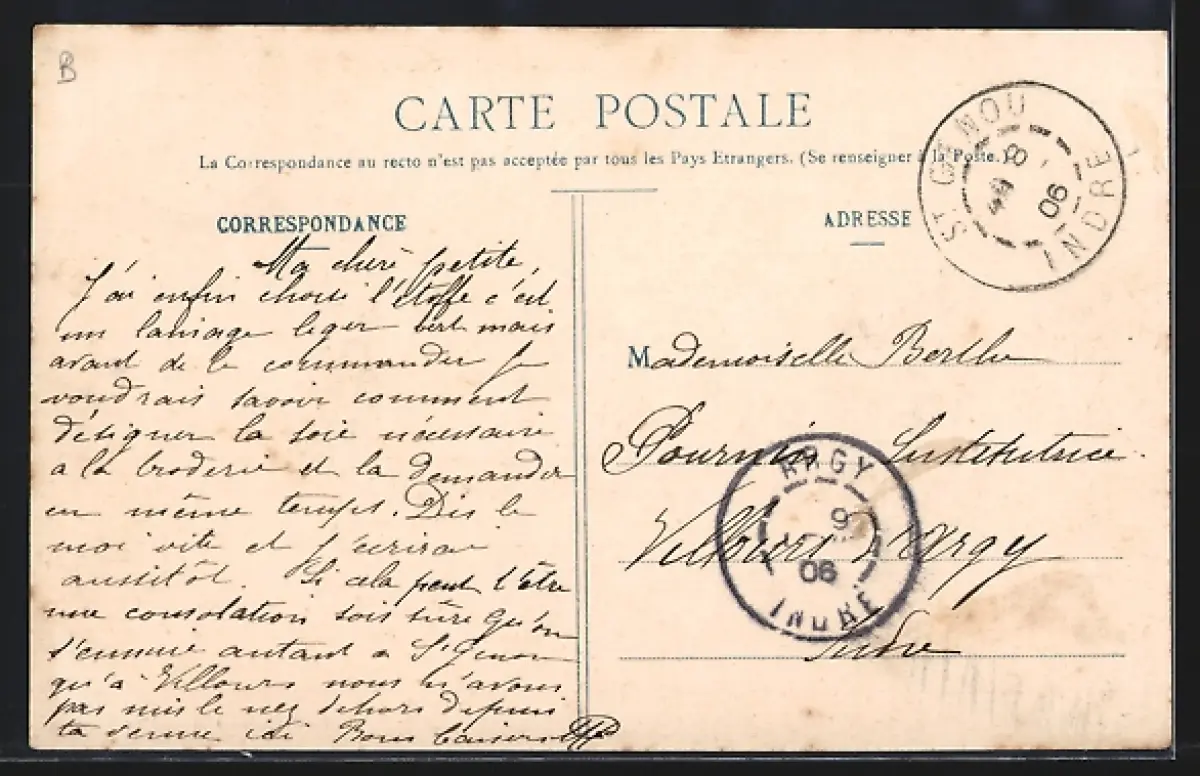 B
CARTE POSTALE
La Correspondance au recto n'est pas acceptée par tous les Pays Etrangers. (Se renseigner à la Poste.)
CORRESPONDANCE
Ma chère petite,
J'ai enfin choisi l'étoffe c'est
un lainage léger vert mais
avant de le commander je
voudrais savoir comment
désigner la soie nécessaire
a la broderie et la demander
en même temps. Dis le
moi vite et j'écrirai
aussitôt. Si cela peut t'être
une consolation sois sûre qu'on
s'ennuie autant a St Genou
qu'à Villours nous n'avons
pas mis le nez dehors depuis
ta venue ici Bons baisers
ADRESSE
Mademoiselle Berthe
Fournier Institutrice
Villours d'Argy
Indre
ST GENOU
8
06
INDRE
ARGY
9
06
INDRE